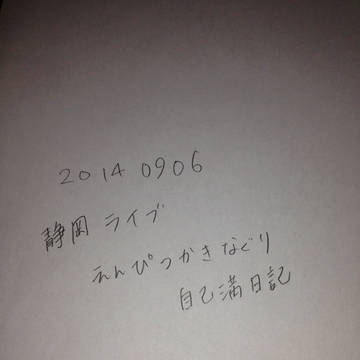 2014 0906
静岡 ライブ
えんぴつかきなどり
自己満日記